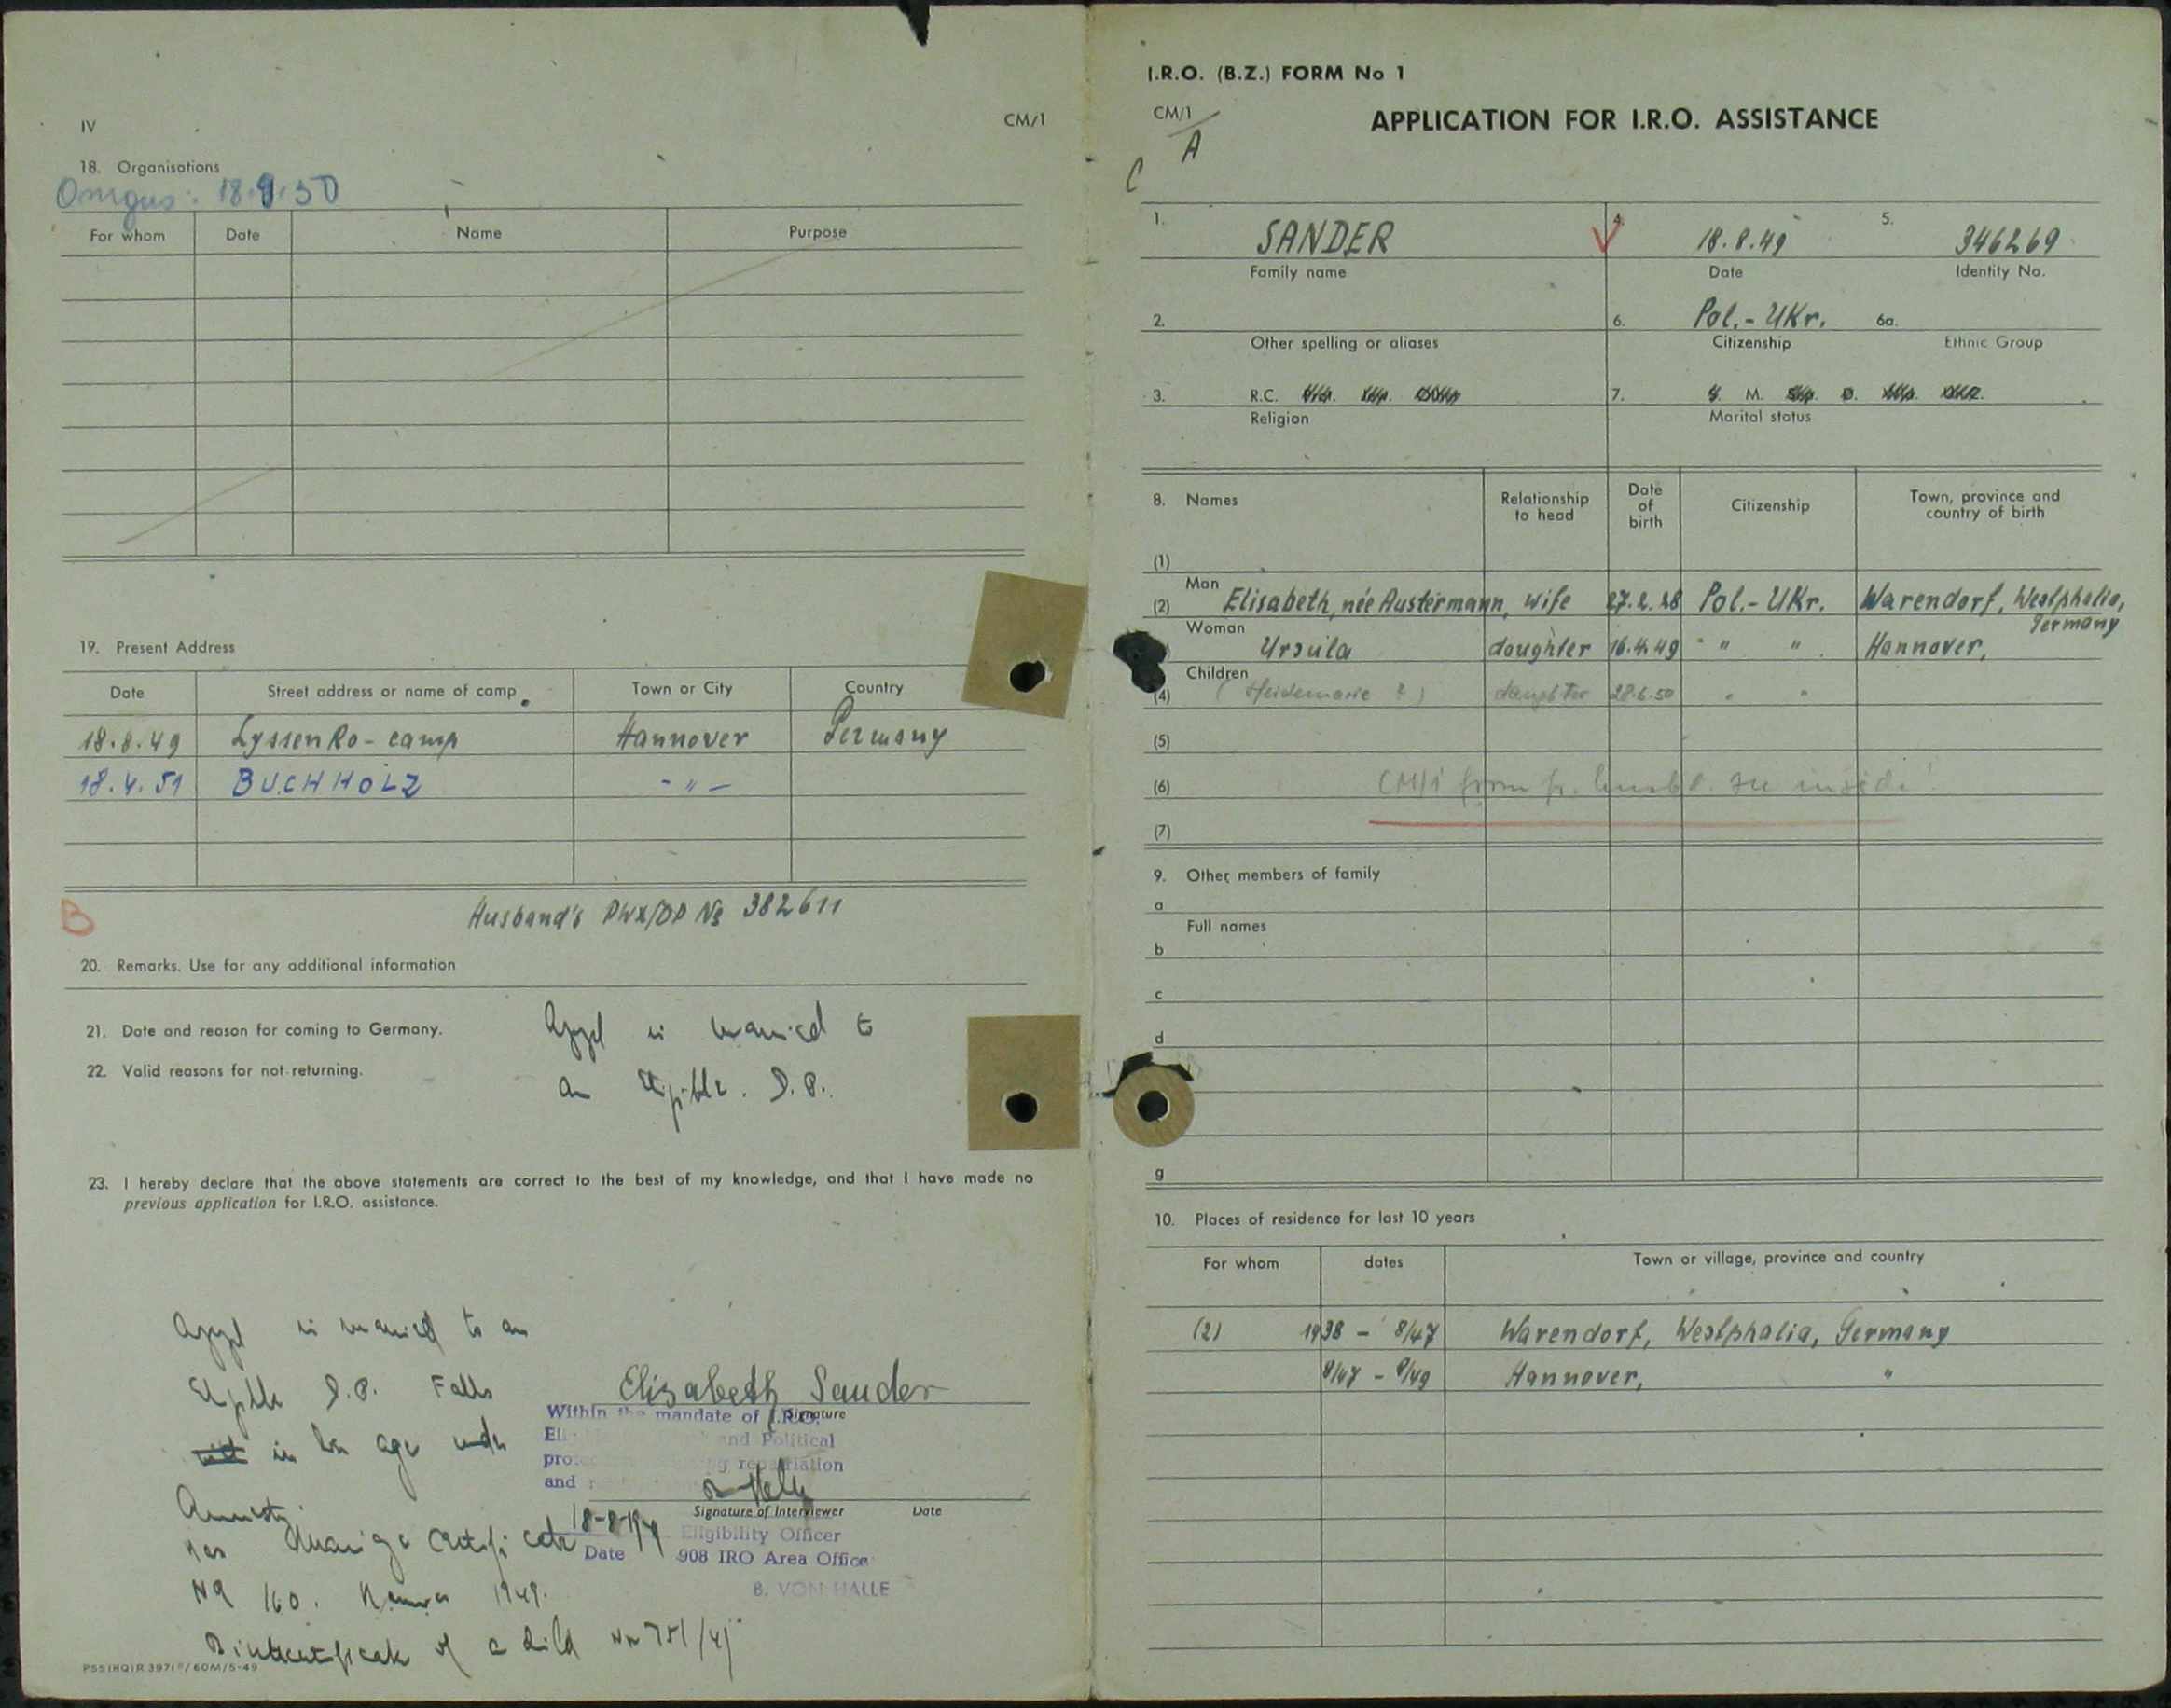 IV
CM/1
18. Organisations
18.9.50
For whom Date Name Purpose
19. Present Address
Date Street address or name of camp Town or City Country
18.8.49 Lyssenko-camp Hannover Germany
18.4.51 BUCHHOLZ - " -
B
Husband's PWX/DP № 382611
20. Remarks. Use for any additional information
21. Date and reason for coming to Germany.
22. Valid reasons for not returning.
Appl is married to
an Eligible. D.P.
23. I hereby declare that the above statements are correct to the best of my knowledge, and that I have made no
previous application for I.R.O. assistance.
Appl is married to an
Eligible D.P. Falls
in
Marriage Certificate
160. 1949.
of a child
Elisabeth Sander
Signature
Within the mandate of I.R.O.
and Political
repatriation
and
Signature of Interviewer Date
18-8-49
Eligibility Officer
Date 908 IRO Area Office
B. VON HALLE
I.R.O. (B.Z.) FORM No 1
CM/1
A
C
APPLICATION FOR I.R.O. ASSISTANCE
1. SANDER 4. 18.8.49 5. 346269
Family name Date Identity No.
2. 6. Pol.-UKr. 6a.
Other spelling or aliases Citizenship Ethnic Group
3. R.C. 7. M.
Religion Marital status
8. Names Relationship to head Date of birth Citizenship Town, province and country of birth
(1)
Man
(2) Elisabeth, née Austermann, wife 27.2.28 Pol.-UKr. Warendorf, Westphalia, Germany
Woman
Ursula daughter 16.4.49 " " Hannover,
Children
(4) (Heidemarie ?) daughter 28.6.50 " "
(5)
(6) CM/1 form
(7)
9. Other members of family
a
Full names
b
c
d
g
10. Places of residence for last 10 years
For whom dates Town or village, province and country
(2) 1938 - 8/47 Warendorf, Westphalia, Germany
8/47 - 8/49 Hannover, "